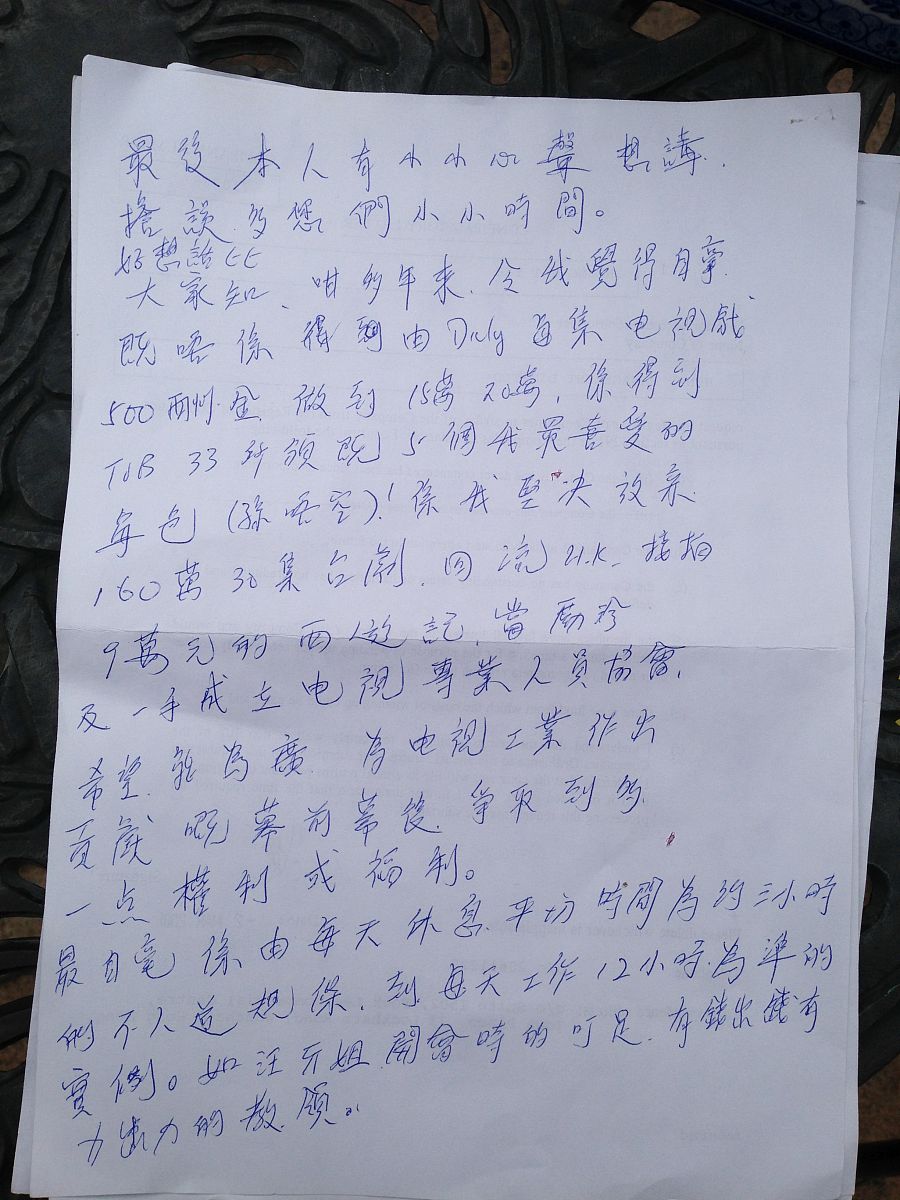 最後本人有小小心聲想講.
擔誤多您們小小時間。
好想話比
大家知、咁多年来.令我覺得自豪
既唔係得到由Daily每集电視戲
500酬金.做到15萬20萬,係得到
TVB 33件頒既5個我最喜愛的
角色(孫悟空)!係我堅决放棄
160萬30集台劇.回流H.K.接拍
9萬元的西遊記.當
及一手成立电視專業人員協會.
希望為廣.為电視工業作出
貢献嘅幕前幕後.爭取到多
一点權利或福利。
最自豪係由每天休息平均時間為約三小時
的不人道規條.到每天工作12小時為準的
實例。如汪姐開會時的叮足.有錢出錢有
力出力的教